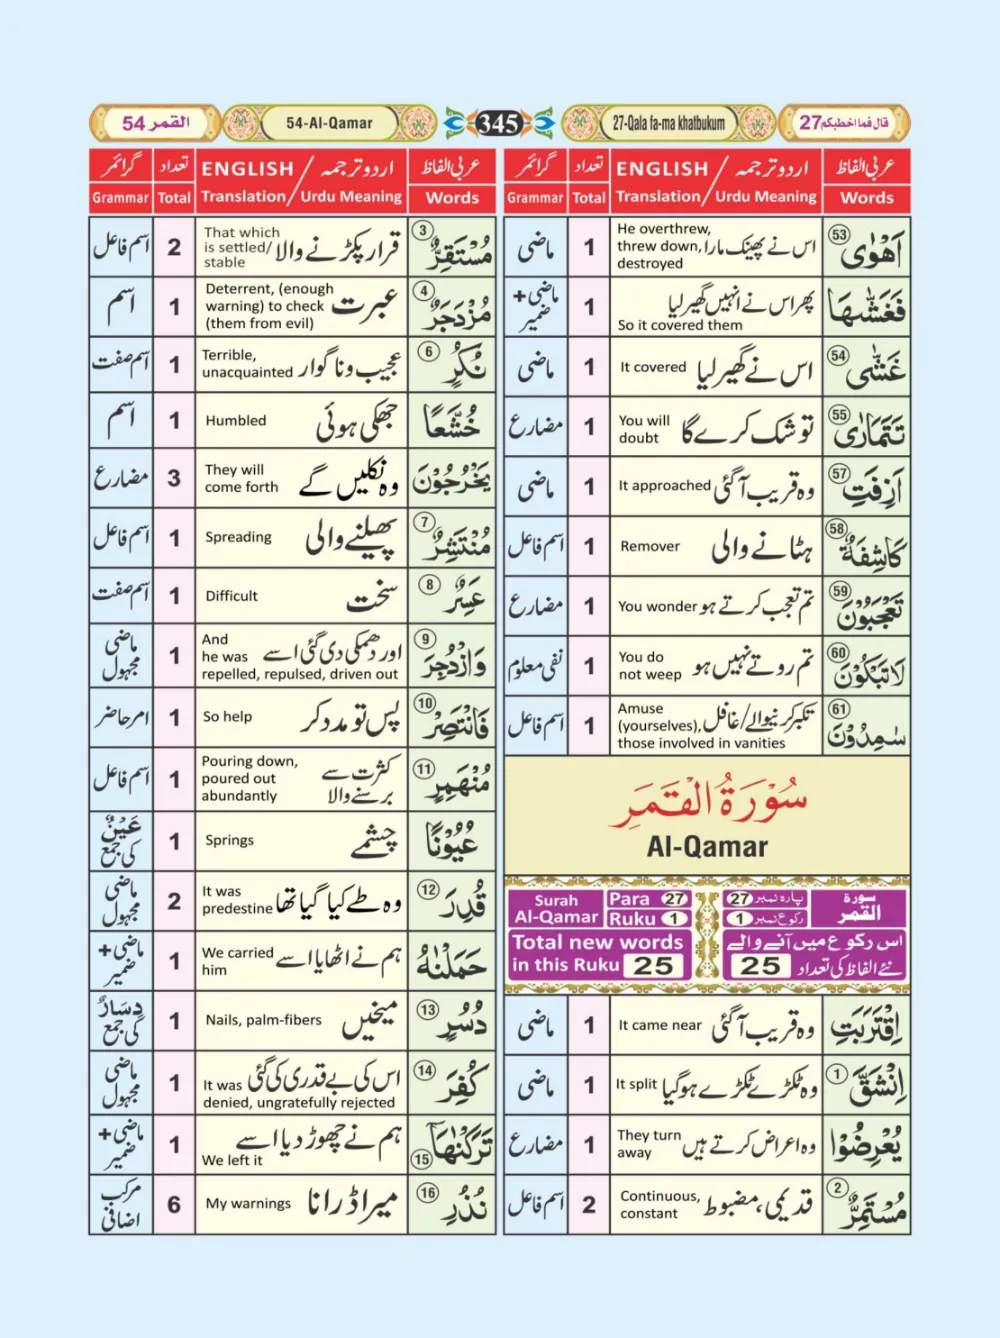 القمر 54
54-Al-Qamar
345
27-Qala fa-ma khatbukum
قال فما اخطبكم27
عربی الفاظ اردو ترجمہ / ENGLISH تعداد گرائمر
Words Urdu Meaning / Translation Total Grammar
اَهْوٰى (53) اس نے پھینک مارا He overthrew, threw down, destroyed 1 ماضی
فَغَشّٰىهَا پھر اس نے انہیں گھیر لیا So it covered them 1 ماضی+ ضمیر
غَشّٰى (54) اس نے گھیر لیا It covered 1 ماضی
تَتَمَارٰى (55) تو شک کرے گا You will doubt 1 مضارع
اَزِفَتِ (57) وہ قریب آ گئی It approached 1 ماضی
كَاشِفَةٌ (58) ہٹانے والی Remover 1 اسم فاعل
تَعْجَبُوْنَ (59) تم تعجب کرتے ہو You wonder 1 مضارع
لَا تَبْكُوْنَ (60) تم روتے نہیں ہو You do not weep 1 نفی معلوم
سٰمِدُوْنَ (61) تکبر کرنیوالے/غافل Amuse (yourselves), those involved in vanities 1 اسم فاعل
سُوْرَةُ الْقَمَرِ
Al-Qamar
Surah Al-Qamar Para 27 Ruku 1
سورة القمر پارہ نمبر 27 رکوع نمبر 1
Total new words in this Ruku 25
اس رکوع میں آنے والے نئے الفاظ کی تعداد 25
اِقْتَرَبَتِ وہ قریب آ گئی It came near 1 ماضی
اِنْشَقَّ (1) وہ ٹکڑے ٹکڑے ہو گیا It split 1 ماضی
يُعْرِضُوْا وہ اعراض کرتے ہیں They turn away 1 مضارع
مُسْتَمِرٌّ (2) قدیمی، مضبوط Continuous, constant 2 اسم فاعل
عربی الفاظ اردو ترجمہ / ENGLISH تعداد گرائمر
Words Urdu Meaning / Translation Total Grammar
مُسْتَقِرٌّ (3) قرار پکڑنے والا That which is settled/ stable 2 اسم فاعل
مُزْدَجَرٌ (4) عبرت Deterrent, (enough warning) to check (them from evil) 1 اسم
نُكُرٍ (6) عجیب و ناگوار Terrible, unacquainted 1 اسم صفت
خُشَّعًا جھکی ہوئی Humbled 1 اسم
يَخْرُجُوْنَ وہ نکلیں گے They will come forth 3 مضارع
مُنْتَشِرٌ (7) پھیلنے والی Spreading 1 اسم فاعل
عَسِرٌ (8) سخت Difficult 1 اسم صفت
وَازْدُجِرَ (9) اور دھمکی دی گئی اسے And he was repelled, repulsed, driven out 1 ماضی مجہول
فَانْتَصِرْ (10) پس تو مدد کر So help 1 امر حاضر
مُنْهَمِرٍ (11) کثرت سے برسنے والا Pouring down, poured out abundantly 1 اسم فاعل
عُيُوْنًا چشمے Springs 1 عَيْنٌ کی جمع
قُدِرَ (12) وہ طے کیا گیا تھا It was predestine 2 ماضی مجہول
حَمَلْنٰهُ ہم نے اٹھایا اسے We carried him 1 ماضی+ ضمیر
دُسُرٍ (13) میخیں Nails, palm-fibers 1 دِسَارٌ کی جمع
كُفِرَ (14) اس کی بے قدری کی گئی It was denied, ungratefully rejected 1 ماضی مجہول
تَرَكْنٰهَا (15) ہم نے چھوڑ دیا اسے We left it 1 ماضی+ ضمیر
نُذُرِ (16) میرا ڈرانا My warnings 6 مرکب اضافی